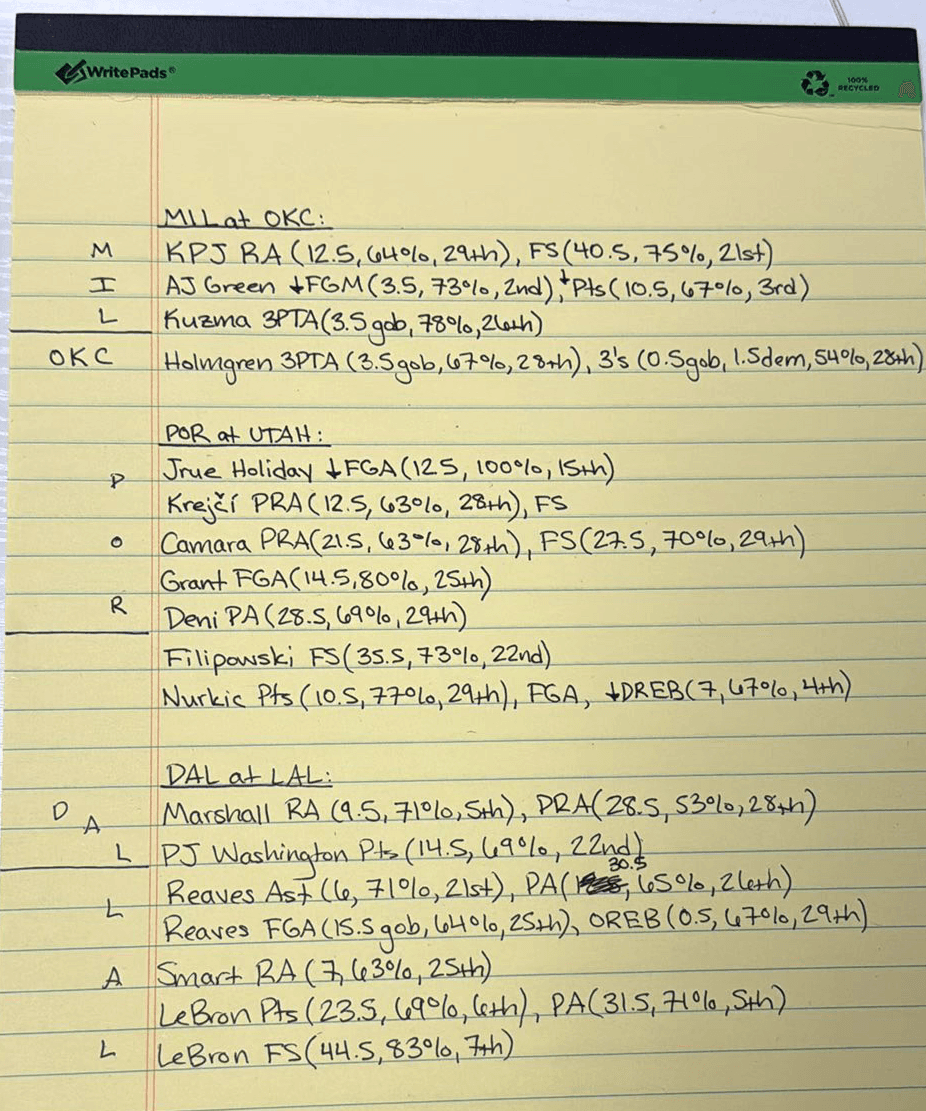 WritePads®
100%
RECYCLED
MIL at OKC:
M KPJ RA (12.5, 64%, 29th), FS(40.5, 75%, 21st)
I AJ Green ↓FGM(3.5, 73%, 2nd), ↓Pts(10.5, 67%, 3rd)
L Kuzma 3PTA(3.5gob, 78%, 26th)
OKC Holmgren 3PTA (3.5gob, 67%, 28th), 3's (0.5gob, 1.5dem, 54%, 28th)
POR at UTAH:
P Jrue Holiday ↓FGA(12.5, 100%, 15th)
Krejčí PRA(12.5, 63%, 28th), FS
O Camara PRA(21.5, 63%, 28th), FS(27.5, 70%, 29th)
Grant FGA(14.5, 80%, 25th)
R Deni PA(28.5, 69%, 29th)
Filipowski FS(35.5, 73%, 22nd)
Nurkic Pts(10.5, 77%, 29th), FGA, ↓DREB(7, 67%, 4th)
DAL at LAL:
D A Marshall RA (9.5, 71%, 5th), PRA(28.5, 53%, 28th)
L PJ Washington Pts(14.5, 69%, 22nd)
Reaves Ast (6, 71%, 21st), PA(30.5, 65%, 26th)
L Reaves FGA(15.5gob, 64%, 25th), OREB(0.5, 67%, 29th)
A Smart RA(7, 63%, 25th)
LeBron Pts(23.5, 69%, 6th), PA(31.5, 71%, 5th)
L LeBron FS(44.5, 83%, 7th)